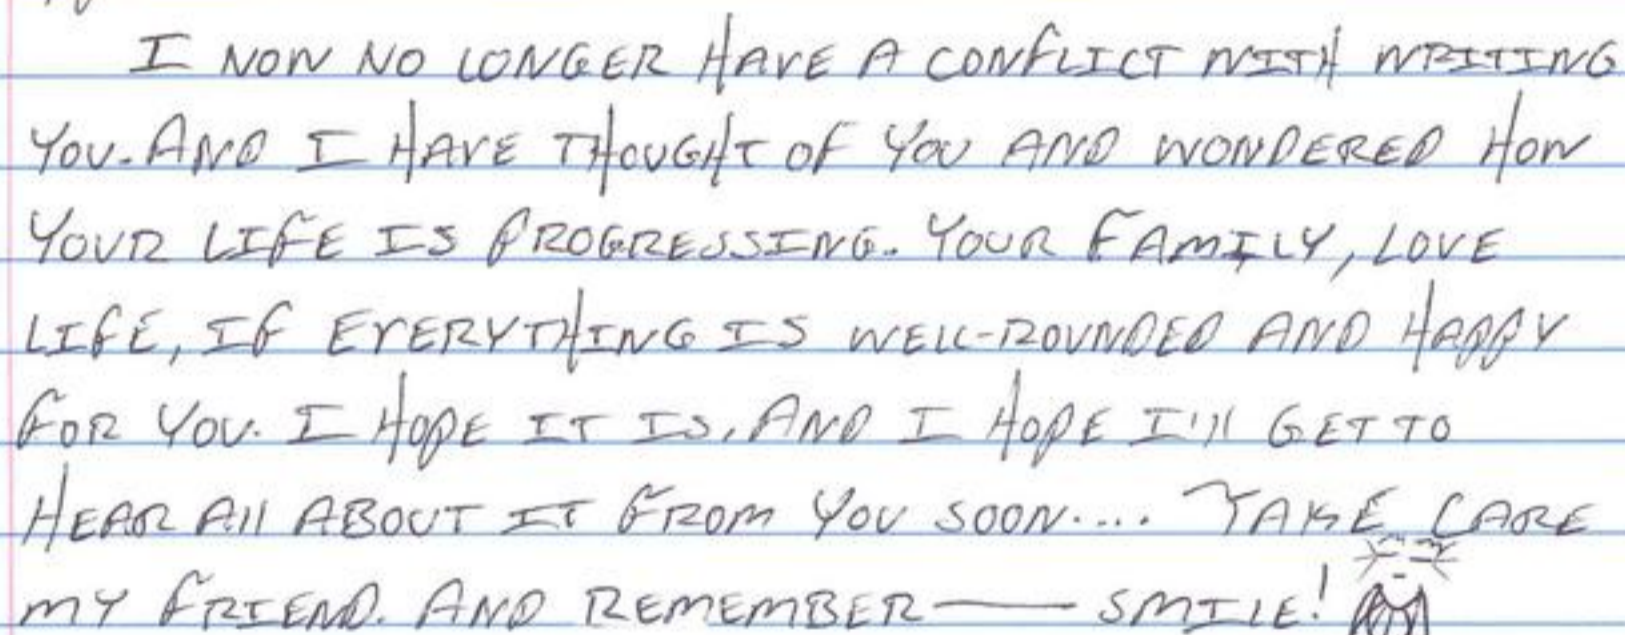 I NOW NO LONGER HAVE A CONFLICT WITH WRITING
YOU. AND I HAVE THOUGHT OF YOU AND WONDERED HOW
YOUR LIFE IS PROGRESSING. YOUR FAMILY, LOVE
LIFE, IF EVERYTHING IS WELL-ROUNDED AND HAPPY
FOR YOU. I HOPE IT IS, AND I HOPE I'll GET TO
HEAR All ABOUT IT FROM YOU SOON.... TAKE CARE
MY FRIEND. AND REMEMBER— SMILE!